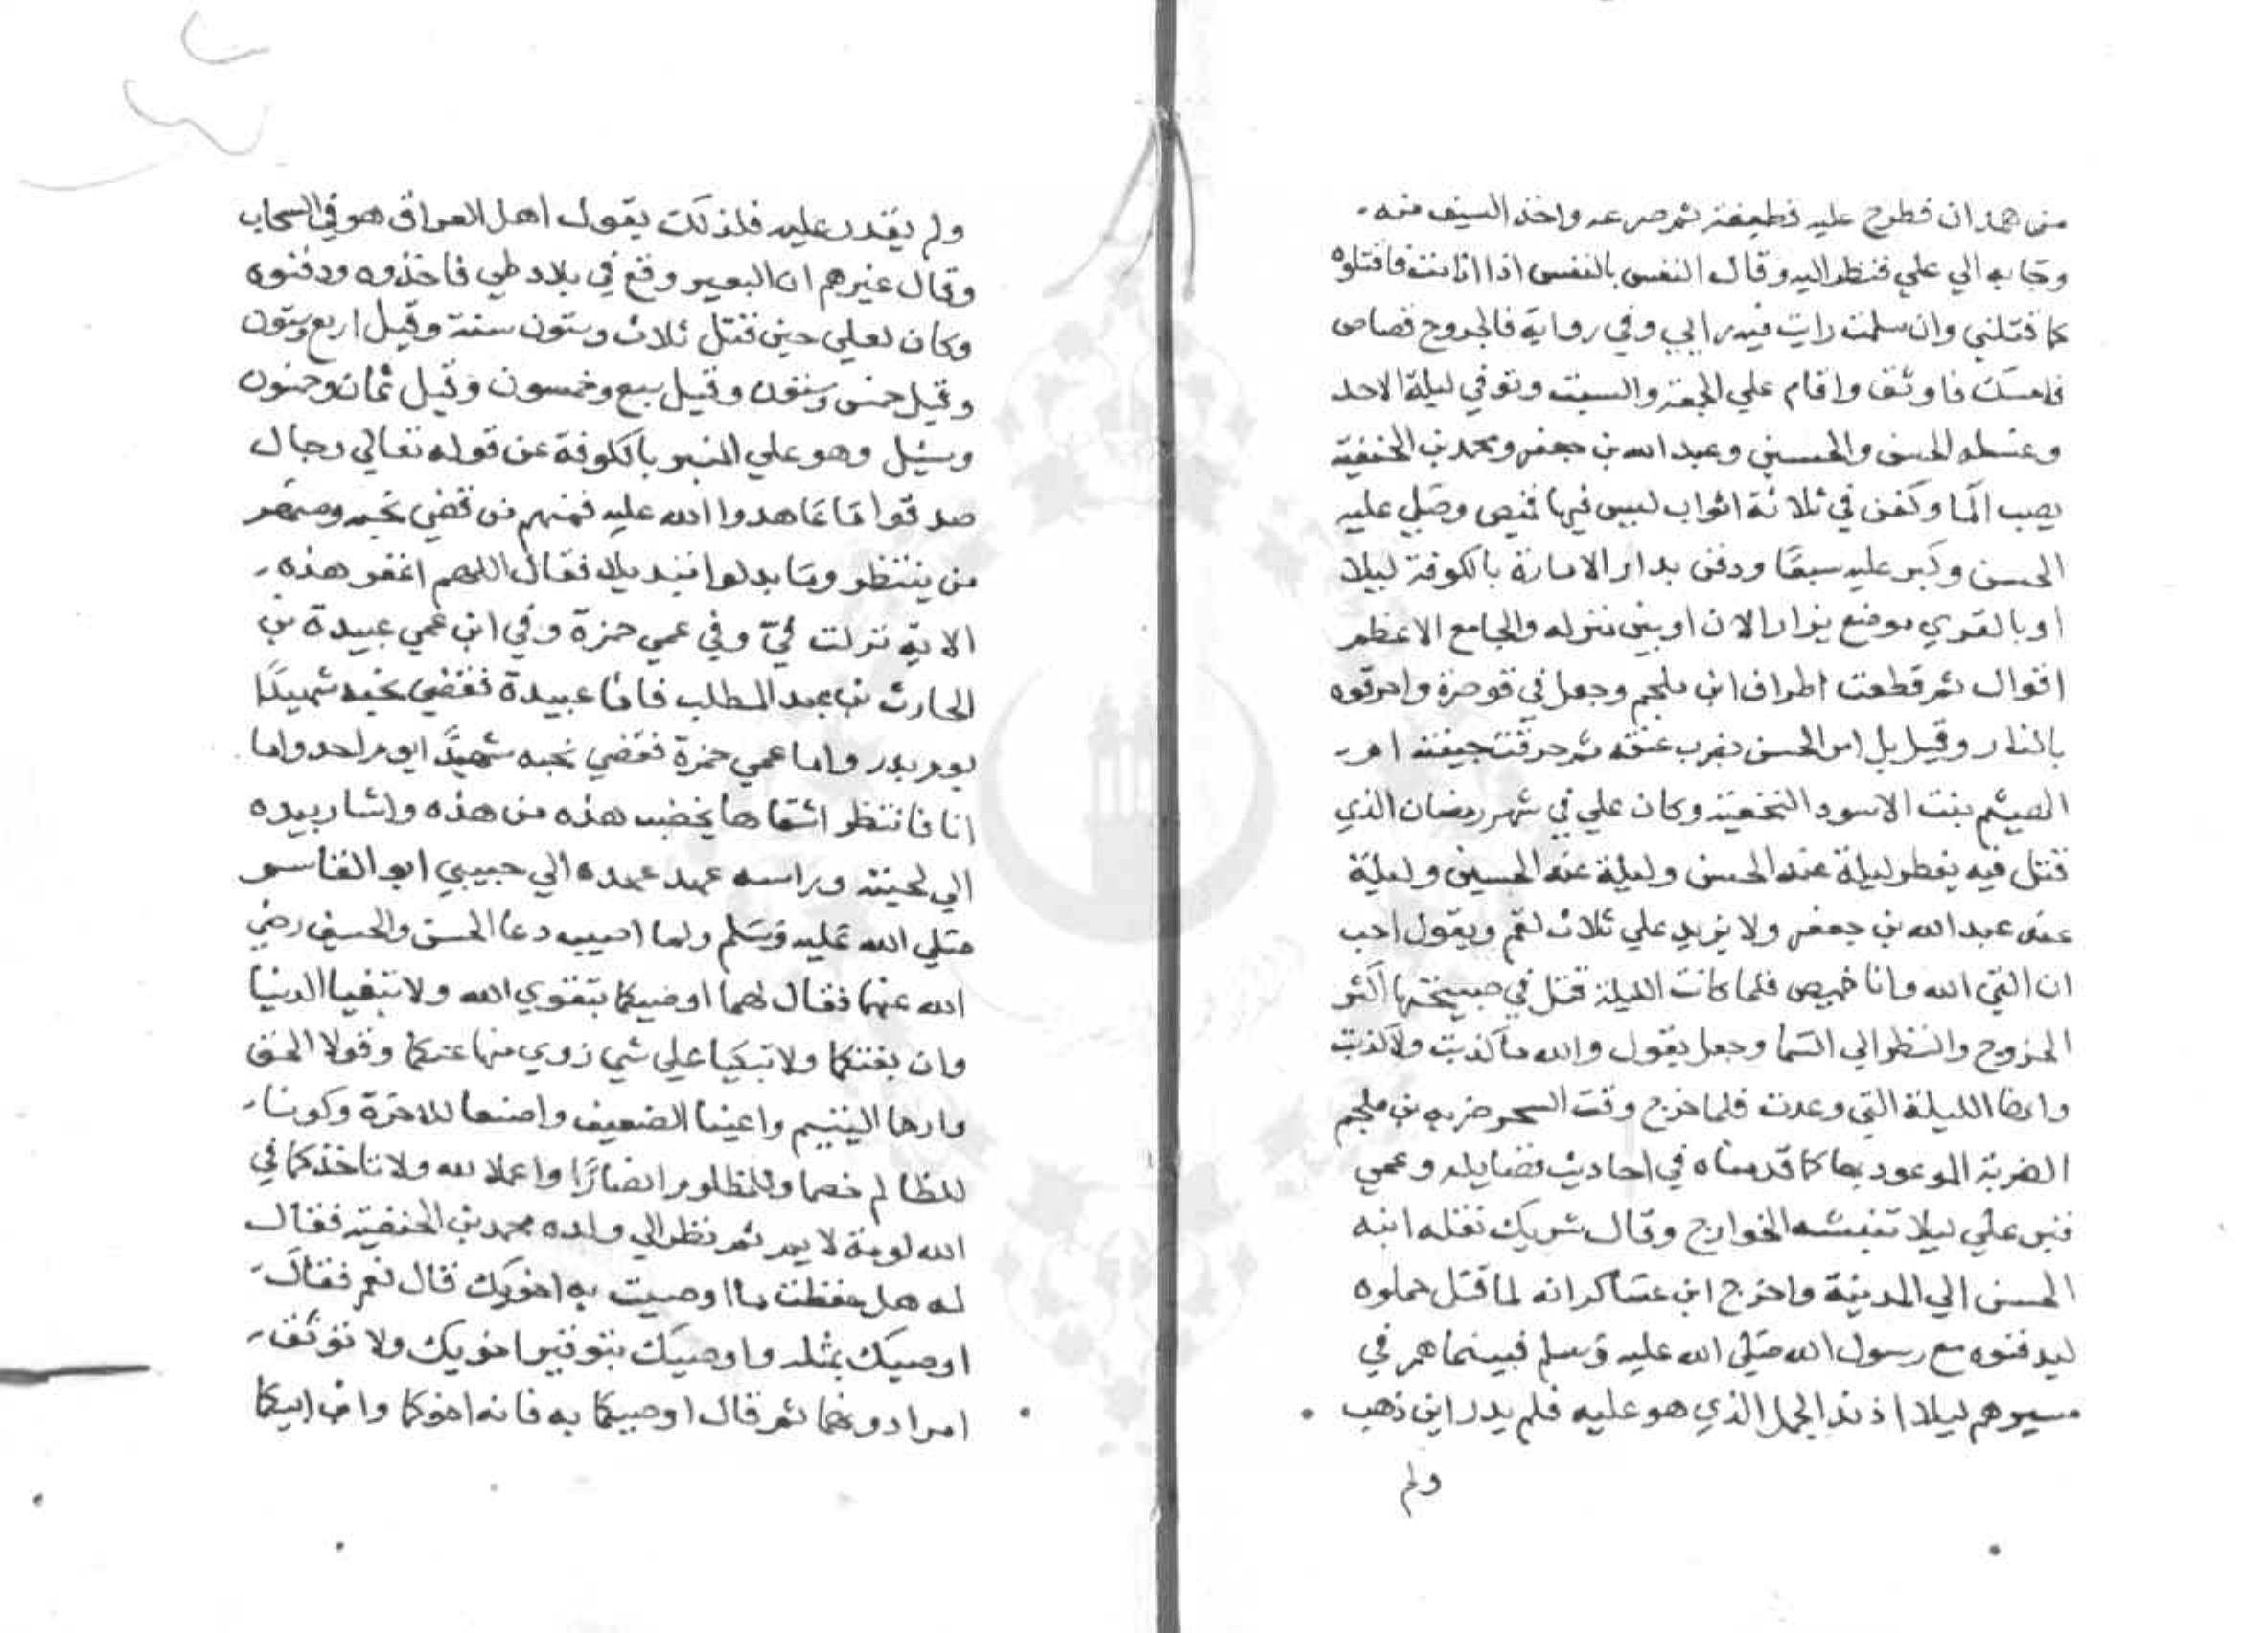 من همدان فطرح عليه قطيفة ثم صرعه واخذ السيف منه
وجا به الي علي فنظر اليه وقال النفس بالنفس اذا انا مت فاقتلوه
كما قتلني وان سلمت رايت فيه رايي وفي رواية فالجروح قصاص
فامسك فاوثق واقام علي الجمعة والسبت وتوفي ليلة الاحد
وغسله الحسن والحسين وعبد الله بن جعفر ومحمد بن الحنفية
يصب الما وكفن في ثلاثة اثواب ليس فيها قميص وصلي عليه
الحسن وكبر عليه سبعا ودفن بدار الامارة بالكوفة ليلا
او بالغري موضع يزار الان او بين منزله والجامع الاعظم
اقوال ثم قطعت اطراف ابن ملجم وجعل في قوصرة واحرقوه
بالنار وقيل بل امر الحسن بضرب عنقه ثم حرقت جيفته ام
الهيثم بنت الاسود النخعية وكان علي في شهر رمضان الذي
قتل فيه يفطر ليلة عند الحسن وليلة عند الحسين وليلة
عند عبد الله بن جعفر ولا يزيد علي ثلاث لقم ويقول احب
ان القي الله وانا خميص فلما كانت الليلة قتل في صبيحتها اكثر
الخروج والنظر الي السما وجعل يقول والله ما كذبت ولا كذبت
وانها الليلة التي وعدت فلما خرج وقت السحر ضربه بن ملجم
الضربة الموعود بها كما قدمناه في احاديث فضايله وعمي
قبر علي ليلا تنبشه الخوارج وقال شريك نقله ابنه
الحسن الي المدينة واخرج ابن عساكر انه لما قتل حملوه
ليدفنوه مع رسول الله صلي الله عليه وسلم فبينما هم في
مسيرهم ليلا اذ ند الجمل الذي هو عليه فلم يدر اين ذهب
ولم
ولم يقدر عليه فلذلك يقول اهل العراق هو في السحاب
وقال غيرهم ان البعير وقع في بلاد طي فاخذوه ودفنوه
وكان لعلي حين قتل ثلاث وستون سنة وقيل اربع وستون
وقيل خمس وستون وقيل سبع وخمسون وقيل ثمان وخمسون
وسئل وهو علي المنبر بالكوفة عن قوله تعالي رجال
صدقوا ما عاهدوا الله عليه فمنهم من قضي نحبه ومنهم
من ينتظر وما بدلوا تبديلا فقال اللهم اغفر هذه
الاية نزلت في وفي عمي حمزة وفي ابن عمي عبيدة بن
الحارث بن عبد المطلب فاما عبيدة فقضي نحبه شهيدا
يوم بدر واما عمي حمزة فقضي نحبه شهيدا يوم احد واما
انا فانتظر اشقاها يخضب هذه من هذه واشار بيده
الي لحيته وراسه عهد عهده الي حبيبي ابو القاسم
صلي الله عليه وسلم ولما اصيب دعا الحسن والحسين رضي
الله عنهما فقال لهما اوصيكما بتقوي الله ولا تبغيا الدنيا
وان بغتكما ولا تبكيا علي شي زوي منها عنكما وقولا الحق
وارحما اليتيم واعينا الضعيف واصنعا للاخرة وكونا
للظالم خصما وللمظلوم انصارا واعملا لله ولا تاخذكما في
الله لومة لايم ثم نظر الي ولده محمد بن الحنفية فقال
له هل حفظت ما اوصيت به اخويك قال نعم فقال
اوصيك بمثله واوصيك بتوقير اخويك ولا توثق
امرا دونهما ثم قال اوصيكما به فانه اخوكما وابن ابيكما